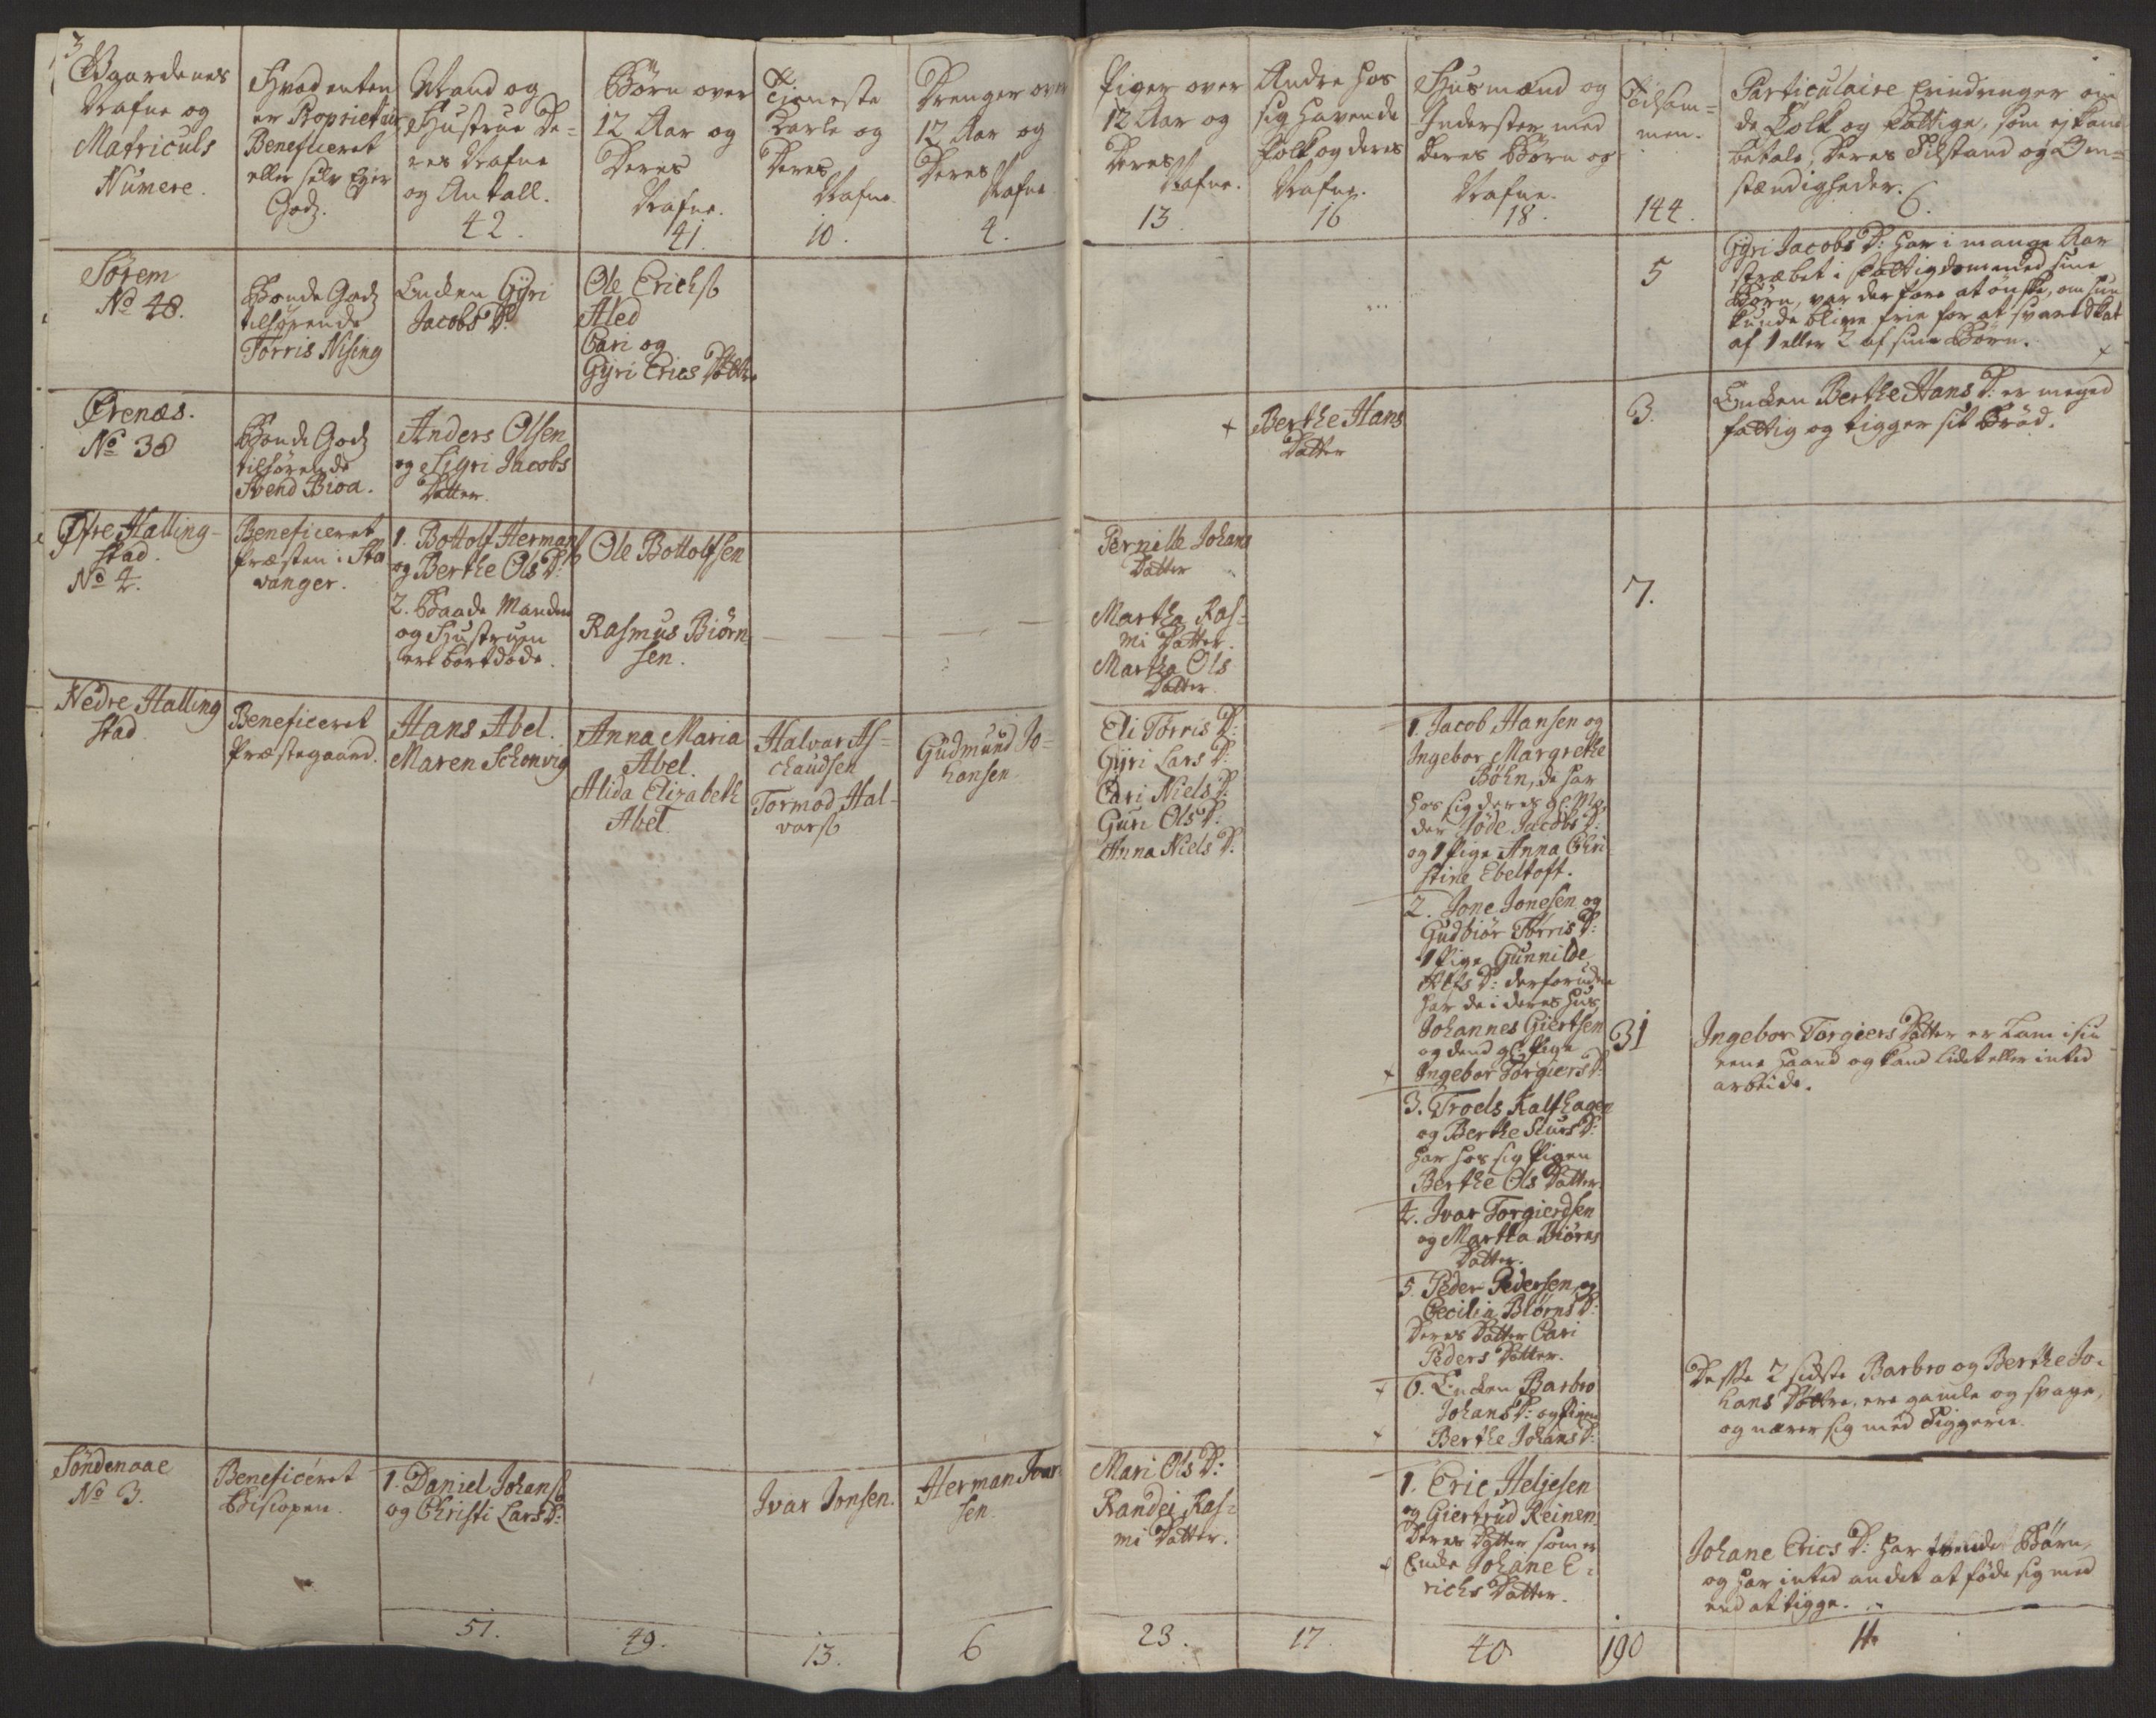 3
Gaardenes
Nafne og
Matriculs
Numere.
Hvad enten
er Proprietair,
Beneficeret
eller selv Ejer
Godz.
Mand og
Hustrue De-
res Nafne
og Antall.
42.
Børn over
12 Aar og
Deres
Nafne.
41.
Tieneste
Karle og
Deres
Nafne.
10.
Drenger over
12 Aar og
Deres
Nafne.
4.
Piger over
12 Aar og
Deres
Nafne.
13
Andre hos
sig havende
Folk og deres
Nafne.
16
Huusmænd og
Inderster med
deres Børn og
Nafne.
18.
Tilsam-
men.
144.
Particulaire Erindringer om
de Folk og Fattige, som ej kand
betale, Deres Tilstand og Om-
stændigheder.
6.
Sørem
No 48.
Bonde Godz
tilhørende
Torris Nising
Encken Gyri
Jacobs D:
Ole Erichs
Aled
Cari og
Gyri Erics Døttre
5
Gyri Jacobs D: har i mange Aar
stræbet i fattigdom med sine
Børn, var derfore at ønske, om hun
kunde blive frie for at svare Skat
af 1 eller 2 af sine Børn.
Ørenæs.
No 38
Bonde Godz
tilhørende
Svend Broa.
Anders Olsen
og Sigri Jacobs
Datter.
Berthe Hans
Datter
3.
Encken Berthe Hans D: er meged
fattig og tigger sit Brød.
Øfre Halling-
stad.
No 4.
Beneficeret
Præsten i Sta
vanger.
1. Bottolf Hermans
og Berthe Ols D:
2. Baade Manden
og Hustruen
ere bortdøde.
Ole Bottolfsen
Rasmus Biørn
sen.
Pernille Johans
Datter
Martha Ras-
mi Datter.
Martha Ols
Datter.
7.
Nedre Halling
stad
Beneficeret
Præstegaard.
Hans Abel.
Maren Schonvig
Anna Maria
Abel.
Alida Elizabeth
Abel.
Halvar As-
chaudsen
Tormod Hal-
vars
Gudmund Jo-
hansen.
Eli Torris D:
Gyri Lars D:
Cari Niels D:
Guri Ols D:
Anna Niels D:
1. Jacob Hansen og
Ingebor Margrethe
Bøhn, de har
hos sig deres gl: Mo-
der Iøde Jacobs D:
og 1 Pige Anna Chri
stine Ebeltoft.
2. Jone Jonesen og
Gudbiør Torris D:
1 Pige Gunnilde
D: derforuden
har de i deres Huus
Johannes Giertsen
og dend gl: Pige
Ingebor Torgiers D:
3. Troels Kalfhagen
og Berthe Siurs D:
har hos sig Pigen
Berthe Ols Datter.
4. Ivar Torgierdsen
og Martha Biørns
Datter.
5. Peder Pedersen og
Cecilia Biørns D:
Deres Datter Cari
Peders Datter.
6. Encken Barbro
Johans D: og Pigen
Berthe Johans D:
31
Ingebor Torgiers Datter er Lam i sin
eene Haand og kand lidet eller inted
arbeide.
Disse 2 sidste Barbro og Berthe Jo-
hans Døttre, ere gamle og svage,
og nærer sig med Tiggerie.
Søndenaae
No 3.
Beneficeret
Biscopen.
1. Daniel Johans
og Christi Lars D:
Ivar Jonsen.
Herman Ivar
sen.
Mari Ols D:
Randei Ras-
mi Datter.
1. Eric Heljesen
og Giertrud Reinen.
Deres Datter som er
Encke Johane E-
richs Datter.
Johane Erics D: har tvende Børn,
og har inted andet at føde sig med
end at tigge.
51.
49.
13.
6
23.
17.
40
190
11.